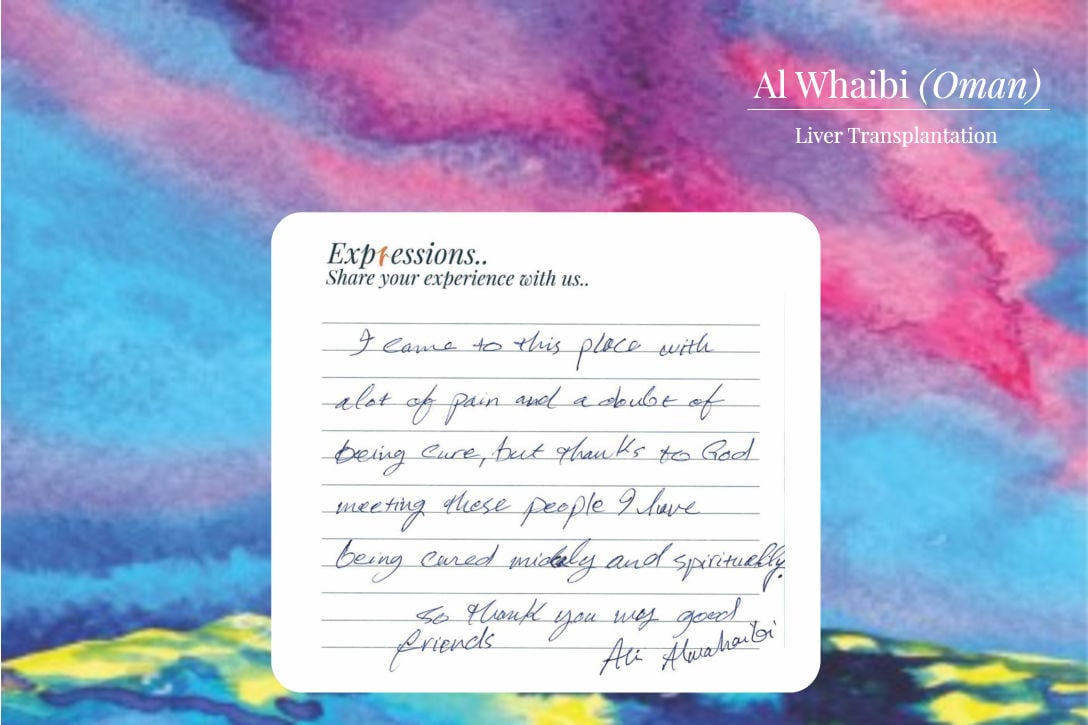 Al Whaibi (Oman)
Liver Transplantation
Expressions..
Share your experience with us..
I came to this place with
alot of pain and a doubt of
being cure, but thanks to God
meeting these people I have
being cured and spiritually.
So thank you my good
friends
Ali Alwahaibi